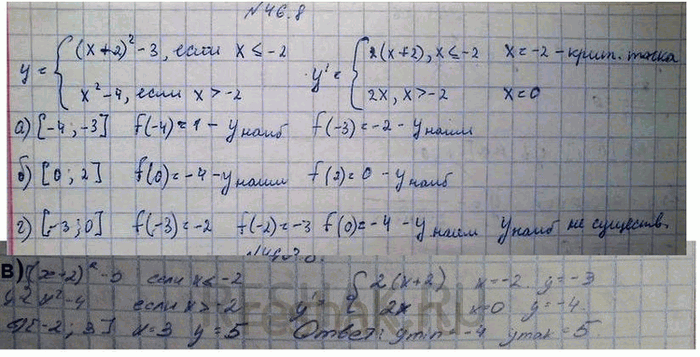 №46.8
y = { (x+2)² - 3, если x ≤ -2
x² - 4, если x > -2
y' = { 2(x+2), x ≤ -2 x = -2 - крит. точка
2x, x > -2 x = 0
а) [-4; -3] f(-4) = 1 - y наиб f(-3) = -2 - y наим
б) [0; 2] f(0) = -4 - y наим f(2) = 0 - y наиб
г) [-3; 0] f(-3) = -2 f(-2) = -3 f(0) = -4 - y наим y наиб не существ.
В) если x ≤ -2 { 2(x+2) x = -2. y = -3
x² - 4 если x > -2 y' = 2x x = 0 y = -4.
[-2; 3] x = 3 y = 5 Ответ: y min = -4 y max = 5